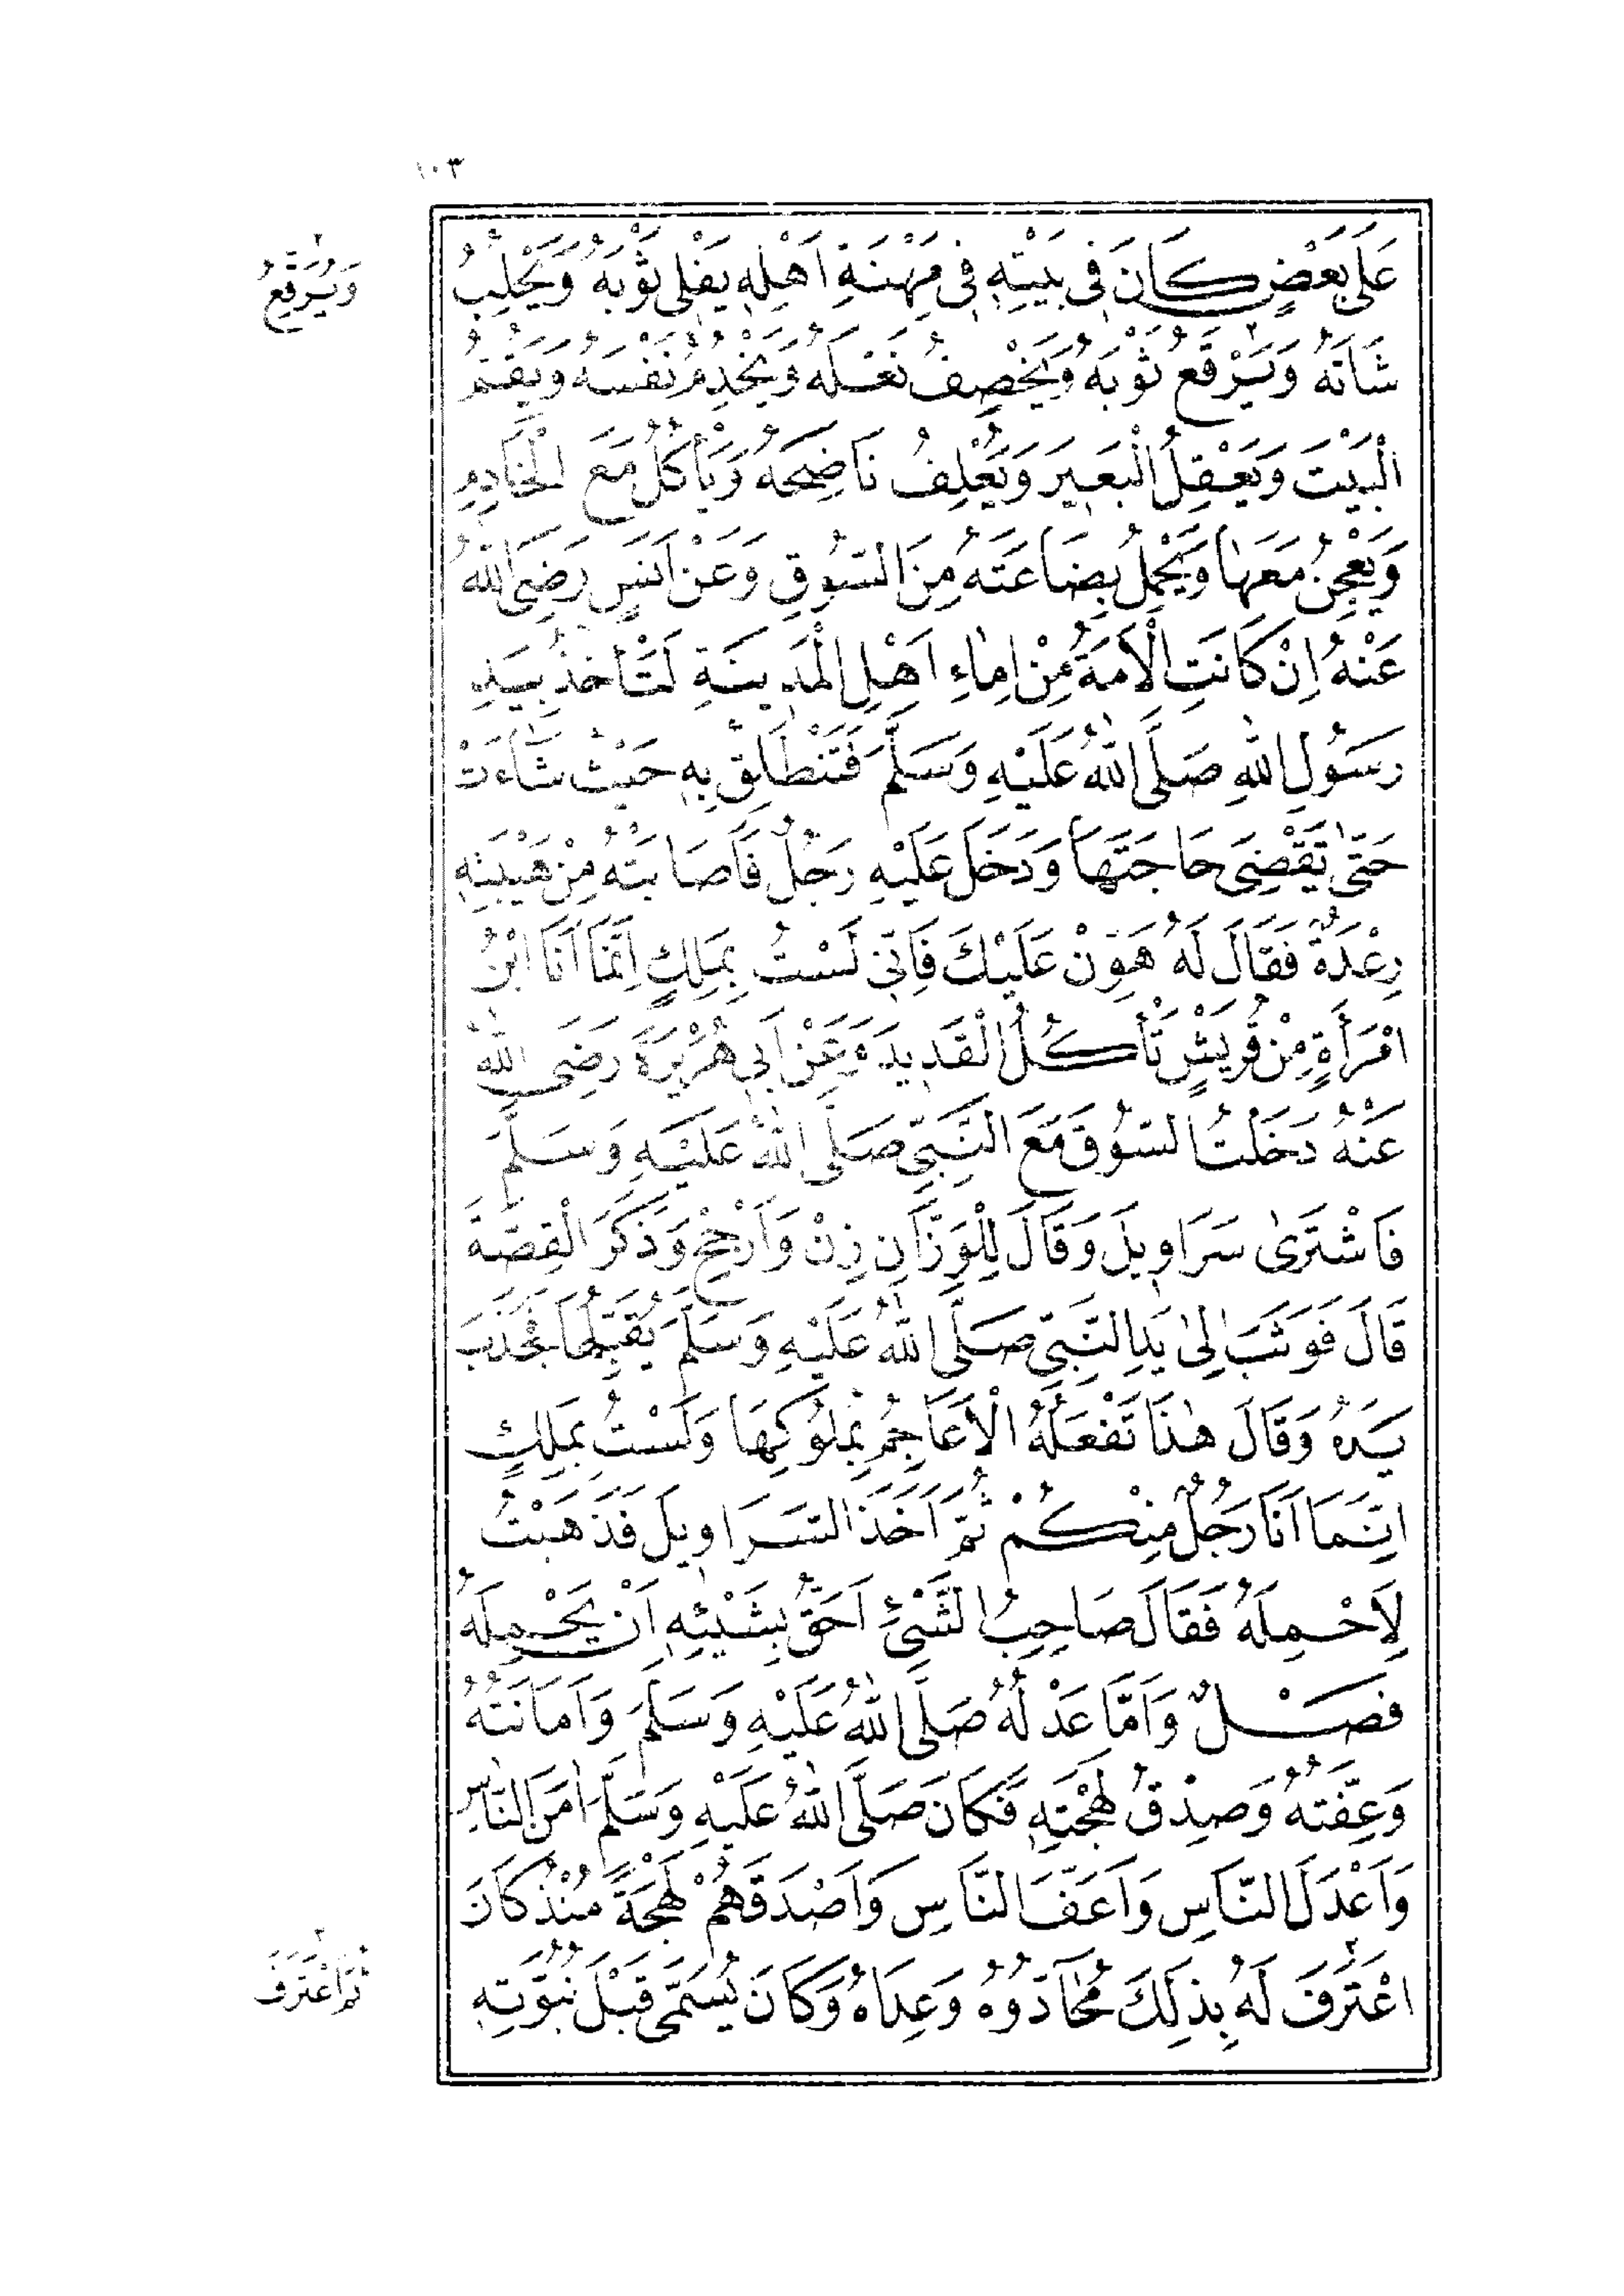 ١٠٣
عَلٰى بَعْضٍ كَانَ فِى بَيْتِهِ فِى مِهْنَةِ اَهْلِهِ يَفْلِى ثَوْبَهُ وَيَحْلِبُ
وَيُرَقِّعُ
شَاتَهُ وَيَرْقَعُ ثَوْبَهُ وَيَخْصِفُ نَعْلَهُ وَيَخْدِمُ نَفْسَهُ وَيَقُمُّ
الْبَيْتَ وَيَعْقِلُ الْبَعِيرَ وَيَعْلِفُ نَاضِحَهُ وَيَأْكُلُ مَعَ الْخَادِمِ
وَيَعْجِنُ مَعَهَا وَيَحْمِلُ بِضَاعَتَهُ مِنَ السُّوقِ وَعَنْ اَنَسٍ رَضِىَ اللّٰهُ
عَنْهُ اِنْ كَانَتِ الْاَمَةُ مِنْ اِمَاءِ اَهْلِ الْمَدِينَةِ لَتَأْخُذُ بِيَدِ
رَسُولِ اللّٰهِ صَلَّى اللّٰهُ عَلَيْهِ وَسَلَّمَ فَتَنْطَلِقُ بِهِ حَيْثُ شَاءَتْ
حَتّٰى تَقْضِىَ حَاجَتَهَا وَدَخَلَ عَلَيْهِ رَجُلٌ فَاَصَابَتْهُ مِنْ هَيْبَتِهِ
رِعْدَةٌ فَقَالَ لَهُ هَوِّنْ عَلَيْكَ فَاِنِّى لَسْتُ بِمَلِكٍ اِنَّمَا اَنَا ابْنُ
امْرَأَةٍ مِنْ قُرَيْشٍ تَأْكُلُ الْقَدِيدَ وَعَنْ اَبِى هُرَيْرَةَ رَضِىَ اللّٰهُ
عَنْهُ دَخَلْتُ السُّوقَ مَعَ النَّبِىِّ صَلَّى اللّٰهُ عَلَيْهِ وَسَلَّمَ
فَاشْتَرٰى سَرَاوِيلَ وَقَالَ لِلْوَزَّانِ زِنْ وَاَرْجِحْ وَذَكَرَ الْقِصَّةَ
قَالَ فَوَثَبَ اِلٰى يَدِ النَّبِىِّ صَلَّى اللّٰهُ عَلَيْهِ وَسَلَّمَ يُقَبِّلُهَا فَجَذَبَ
يَدَهُ وَقَالَ هٰذَا تَفْعَلُهُ الْاَعَاجِمُ بِمُلُوكِهَا وَلَسْتُ بِمَلِكٍ
اِنَّمَا اَنَا رَجُلٌ مِنْكُمْ ثُمَّ اَخَذَ السَّرَاوِيلَ فَذَهَبْتُ
لِاَحْمِلَهُ فَقَالَ صَاحِبُ الشَّىْءِ اَحَقُّ بِشَيْئِهِ اَنْ يَحْمِلَهُ
فَصْلٌ وَاَمَّا عَدْلُهُ صَلَّى اللّٰهُ عَلَيْهِ وَسَلَّمَ وَاَمَانَتُهُ
وَعِفَّتُهُ وَصِدْقُ لَهْجَتِهِ فَكَانَ صَلَّى اللّٰهُ عَلَيْهِ وَسَلَّمَ اٰمَنَ النَّاسِ
وَاَعْدَلَ النَّاسِ وَاَعَفَّ النَّاسِ وَاَصْدَقَهُمْ لَهْجَةً مُنْذُ كَانَ
اعْتَرَفَ لَهُ بِذٰلِكَ مُحَآدُّوهُ وَعِدَاهُ وَكَانَ يُسَمَّى قَبْلَ نُبُوَّتِهِ
ثُمَّ اعْتَرَفَ